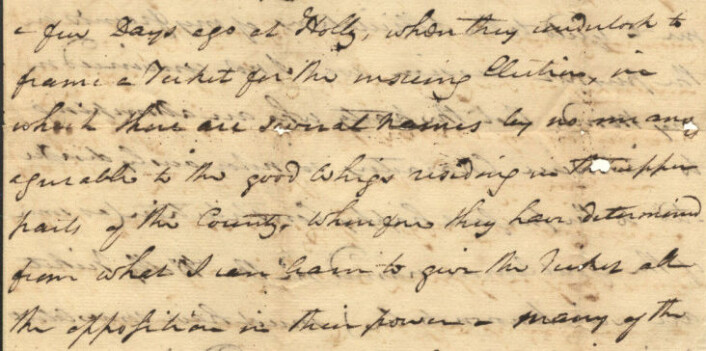 a few Days ago at Holly, when they undertook to
frame a Ticket for the insuing Election, in
which there are several names by no means
agreable to the good Whigs residing in the upper
parts of the County, wherefore they have determined
from what I can learn to give the Ticket all
the opposition in their power – many of the